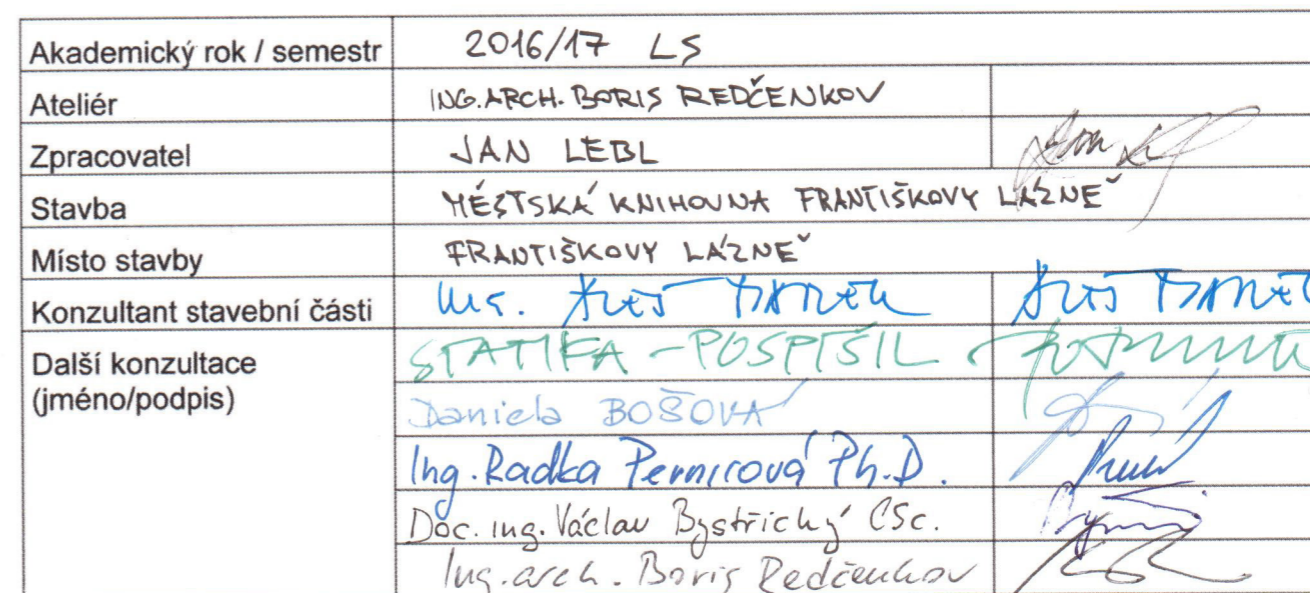 Akademický rok / semestr 2016/17 LS
Ateliér ING.ARCH. BORIS REDČENKOV
Zpracovatel JAN LEBL
Stavba MĚSTSKÁ KNIHOVNA FRANTIŠKOVY LÁZNĚ
Místo stavby FRANTIŠKOVY LÁZNĚ
Konzultant stavební části Ing.
Další konzultace STATIKA - POSPÍŠIL
(jméno/podpis) Daniela BOŠOVÁ
Ing. Radka Pernicová Ph.D.
Doc. ing. Václav Bystřický CSc.
Ing. arch. Boris Redčenkov